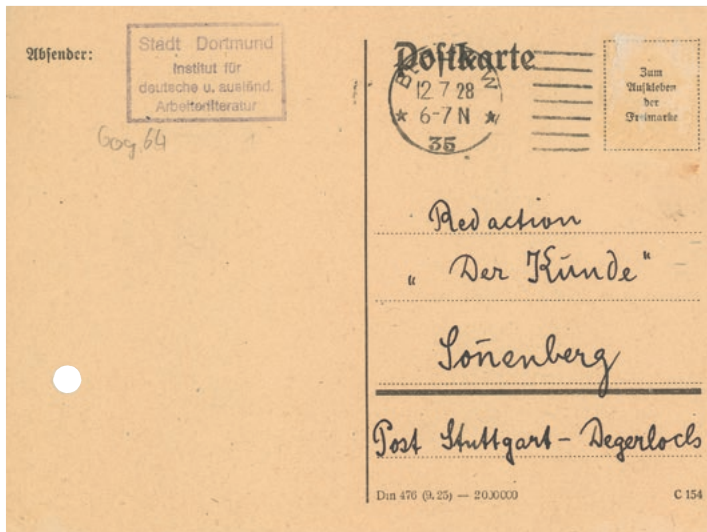 Absender:
Stadt Dortmund
Institut für
deutsche u. ausländ.
Arbeiterliteratur
Gog. 64
Postkarte
12 7 28
★ 6-7 N ★
35
Zum
Aufkleben
der
Freimarke
Redaction
„Der Kunde“
Soñenberg
Post Stuttgart - Degerloch
Din 476 (9. 25) —
C 154